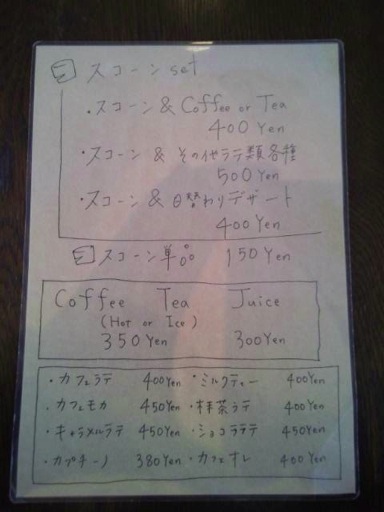 スコーン set
・スコーン & Coffee or Tea
400 Yen
・スコーン & その他ラテ類各種
500 Yen
・スコーン & 日替わりデザート
400 Yen
スコーン単品 150 Yen
Coffee Tea Juice
(Hot or Ice)
350 Yen 300 Yen
・カフェラテ 400 Yen ・ミルクティー 400 Yen
・カフェモカ 450 Yen ・抹茶ラテ 400 Yen
・キャラメルラテ 450 Yen ・ショコララテ 450 Yen
・カプチーノ 380 Yen ・カフェオレ 400 Yen